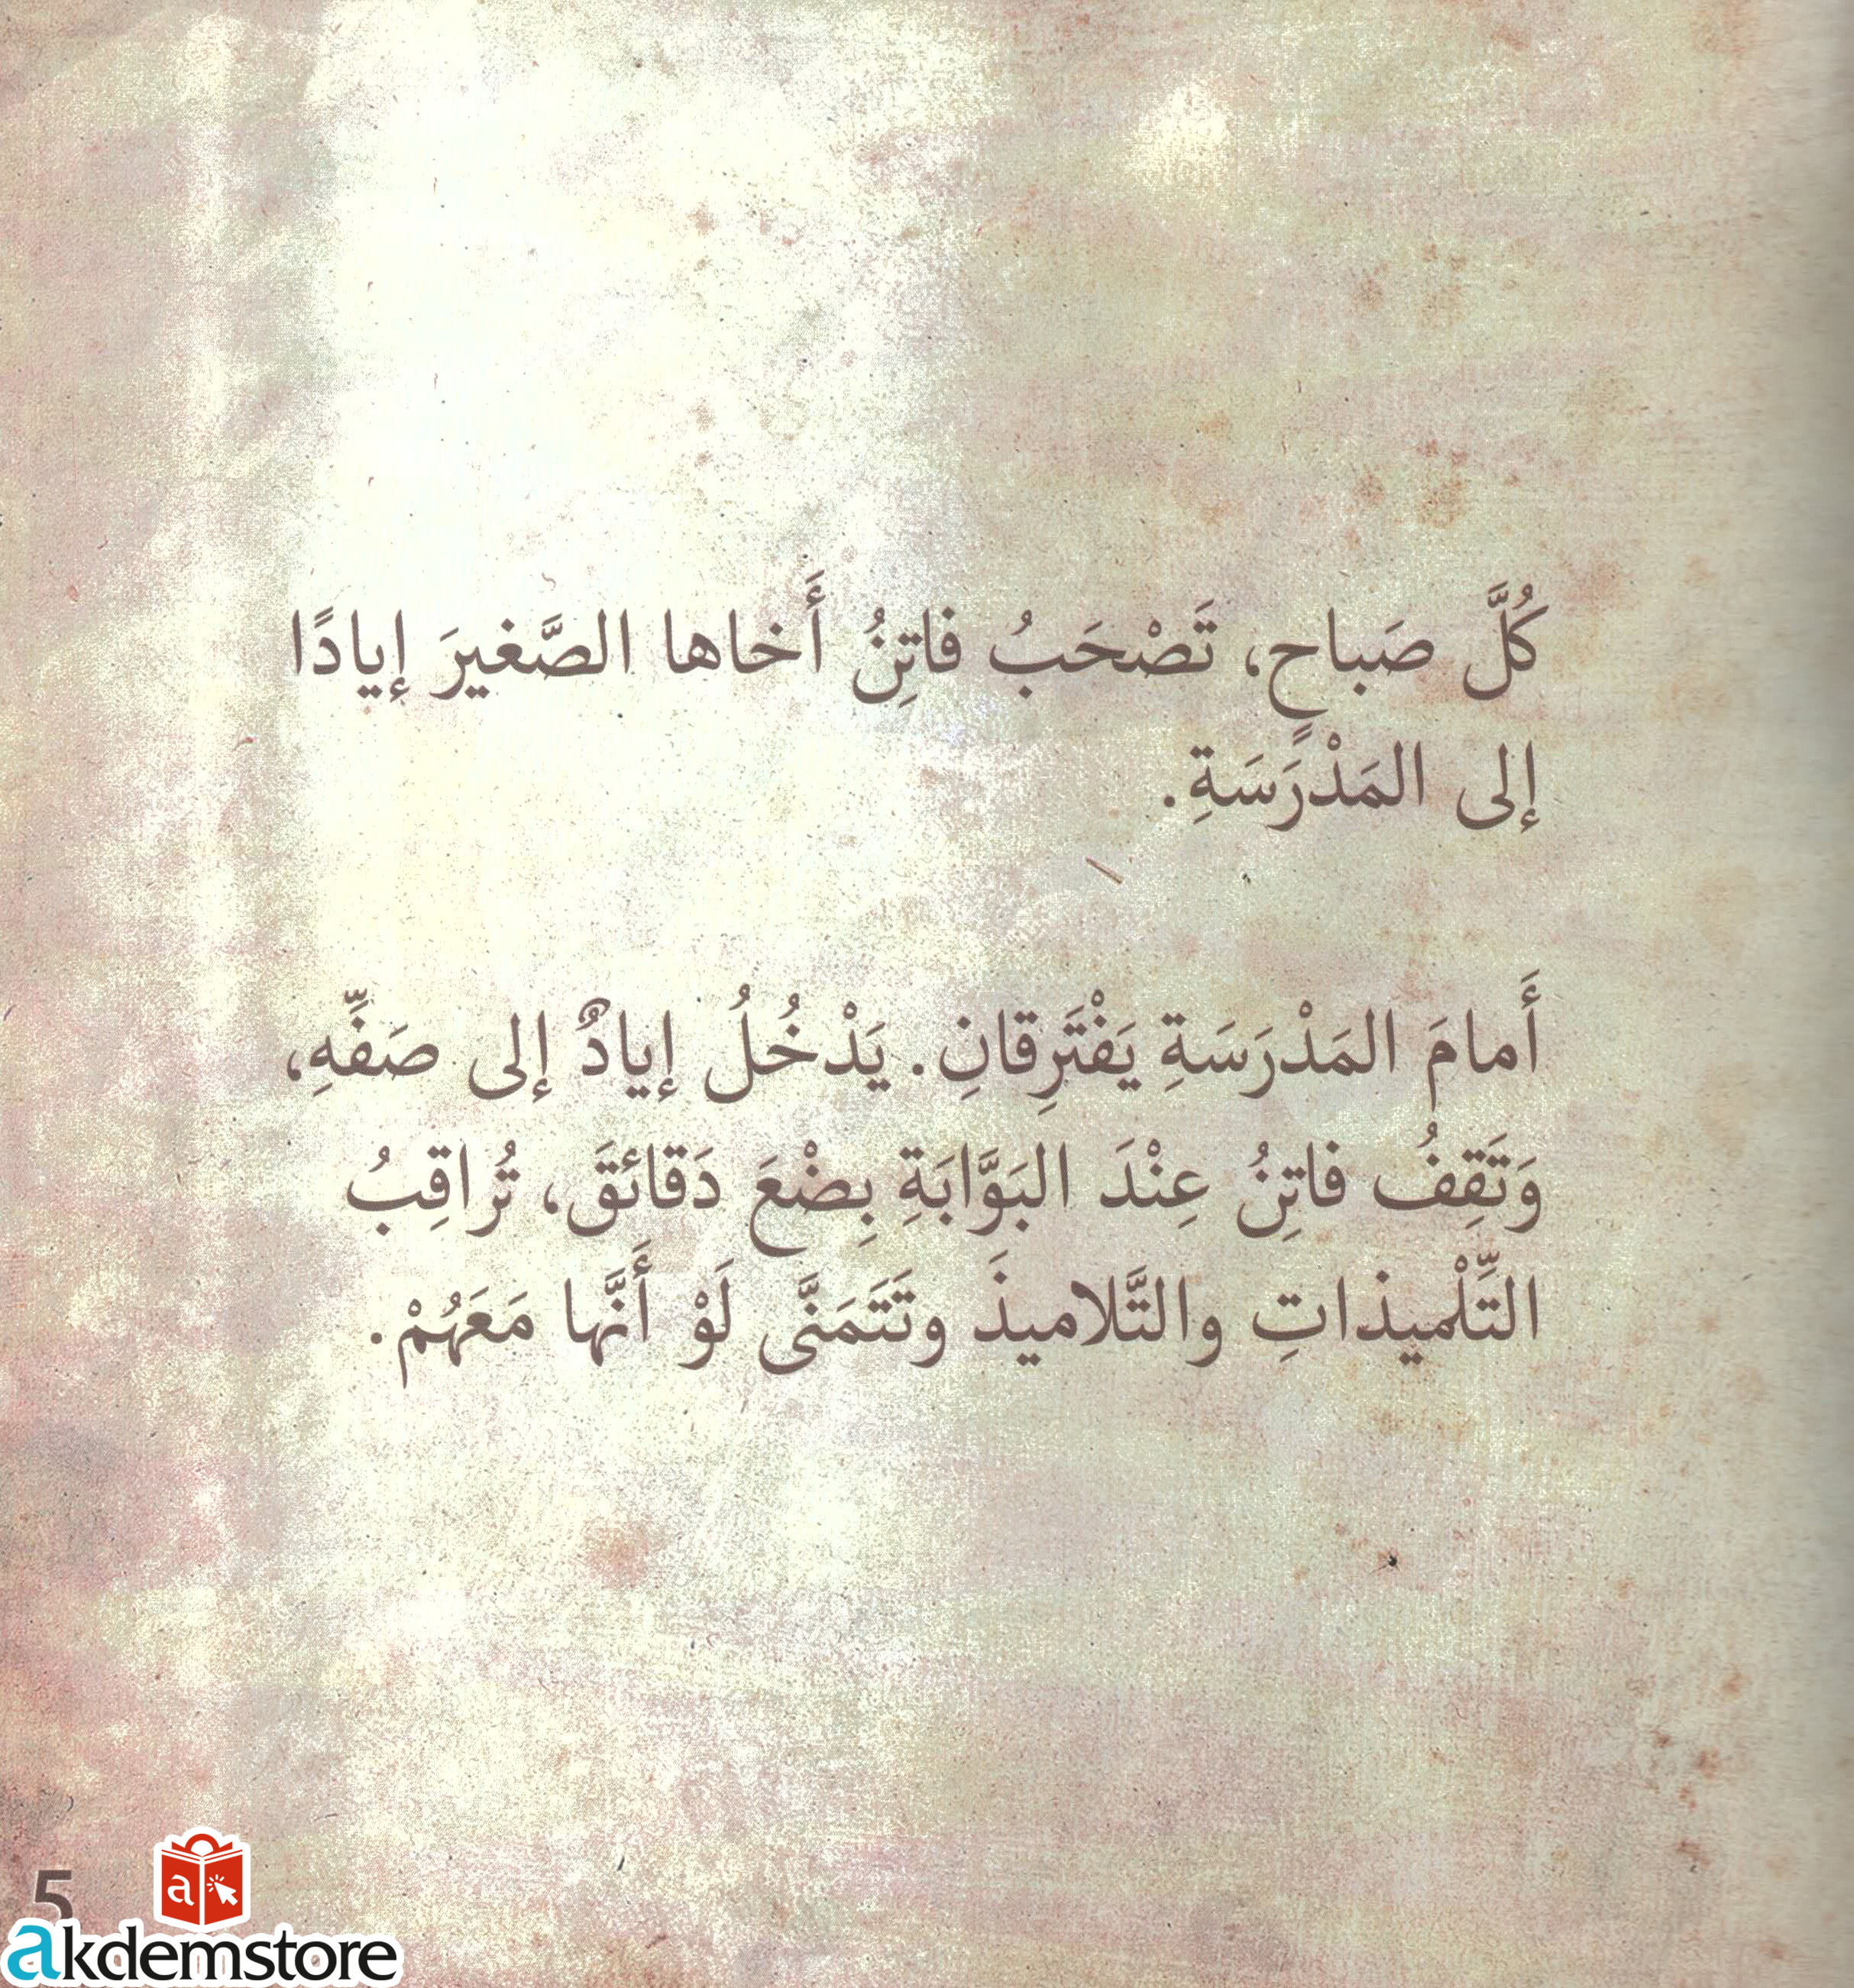 كُلَّ صَباحٍ، تَصْحَبُ فاتِنُ أَخاها الصَّغيرَ إيادًا
إلى المَدْرَسَةِ.
أَمامَ المَدْرَسَةِ يَفْتَرِقانِ. يَدْخُلُ إيادٌ إلى صَفِّهِ،
وَتَقِفُ فاتِنُ عِنْدَ البَوَّابَةِ بِضْعَ دَقائقَ، تُراقِبُ
التِّلْميذاتِ والتَّلاميذَ وتَتَمَنَّى لَوْ أَنَّها مَعَهُمْ.
5
a
akdemstore